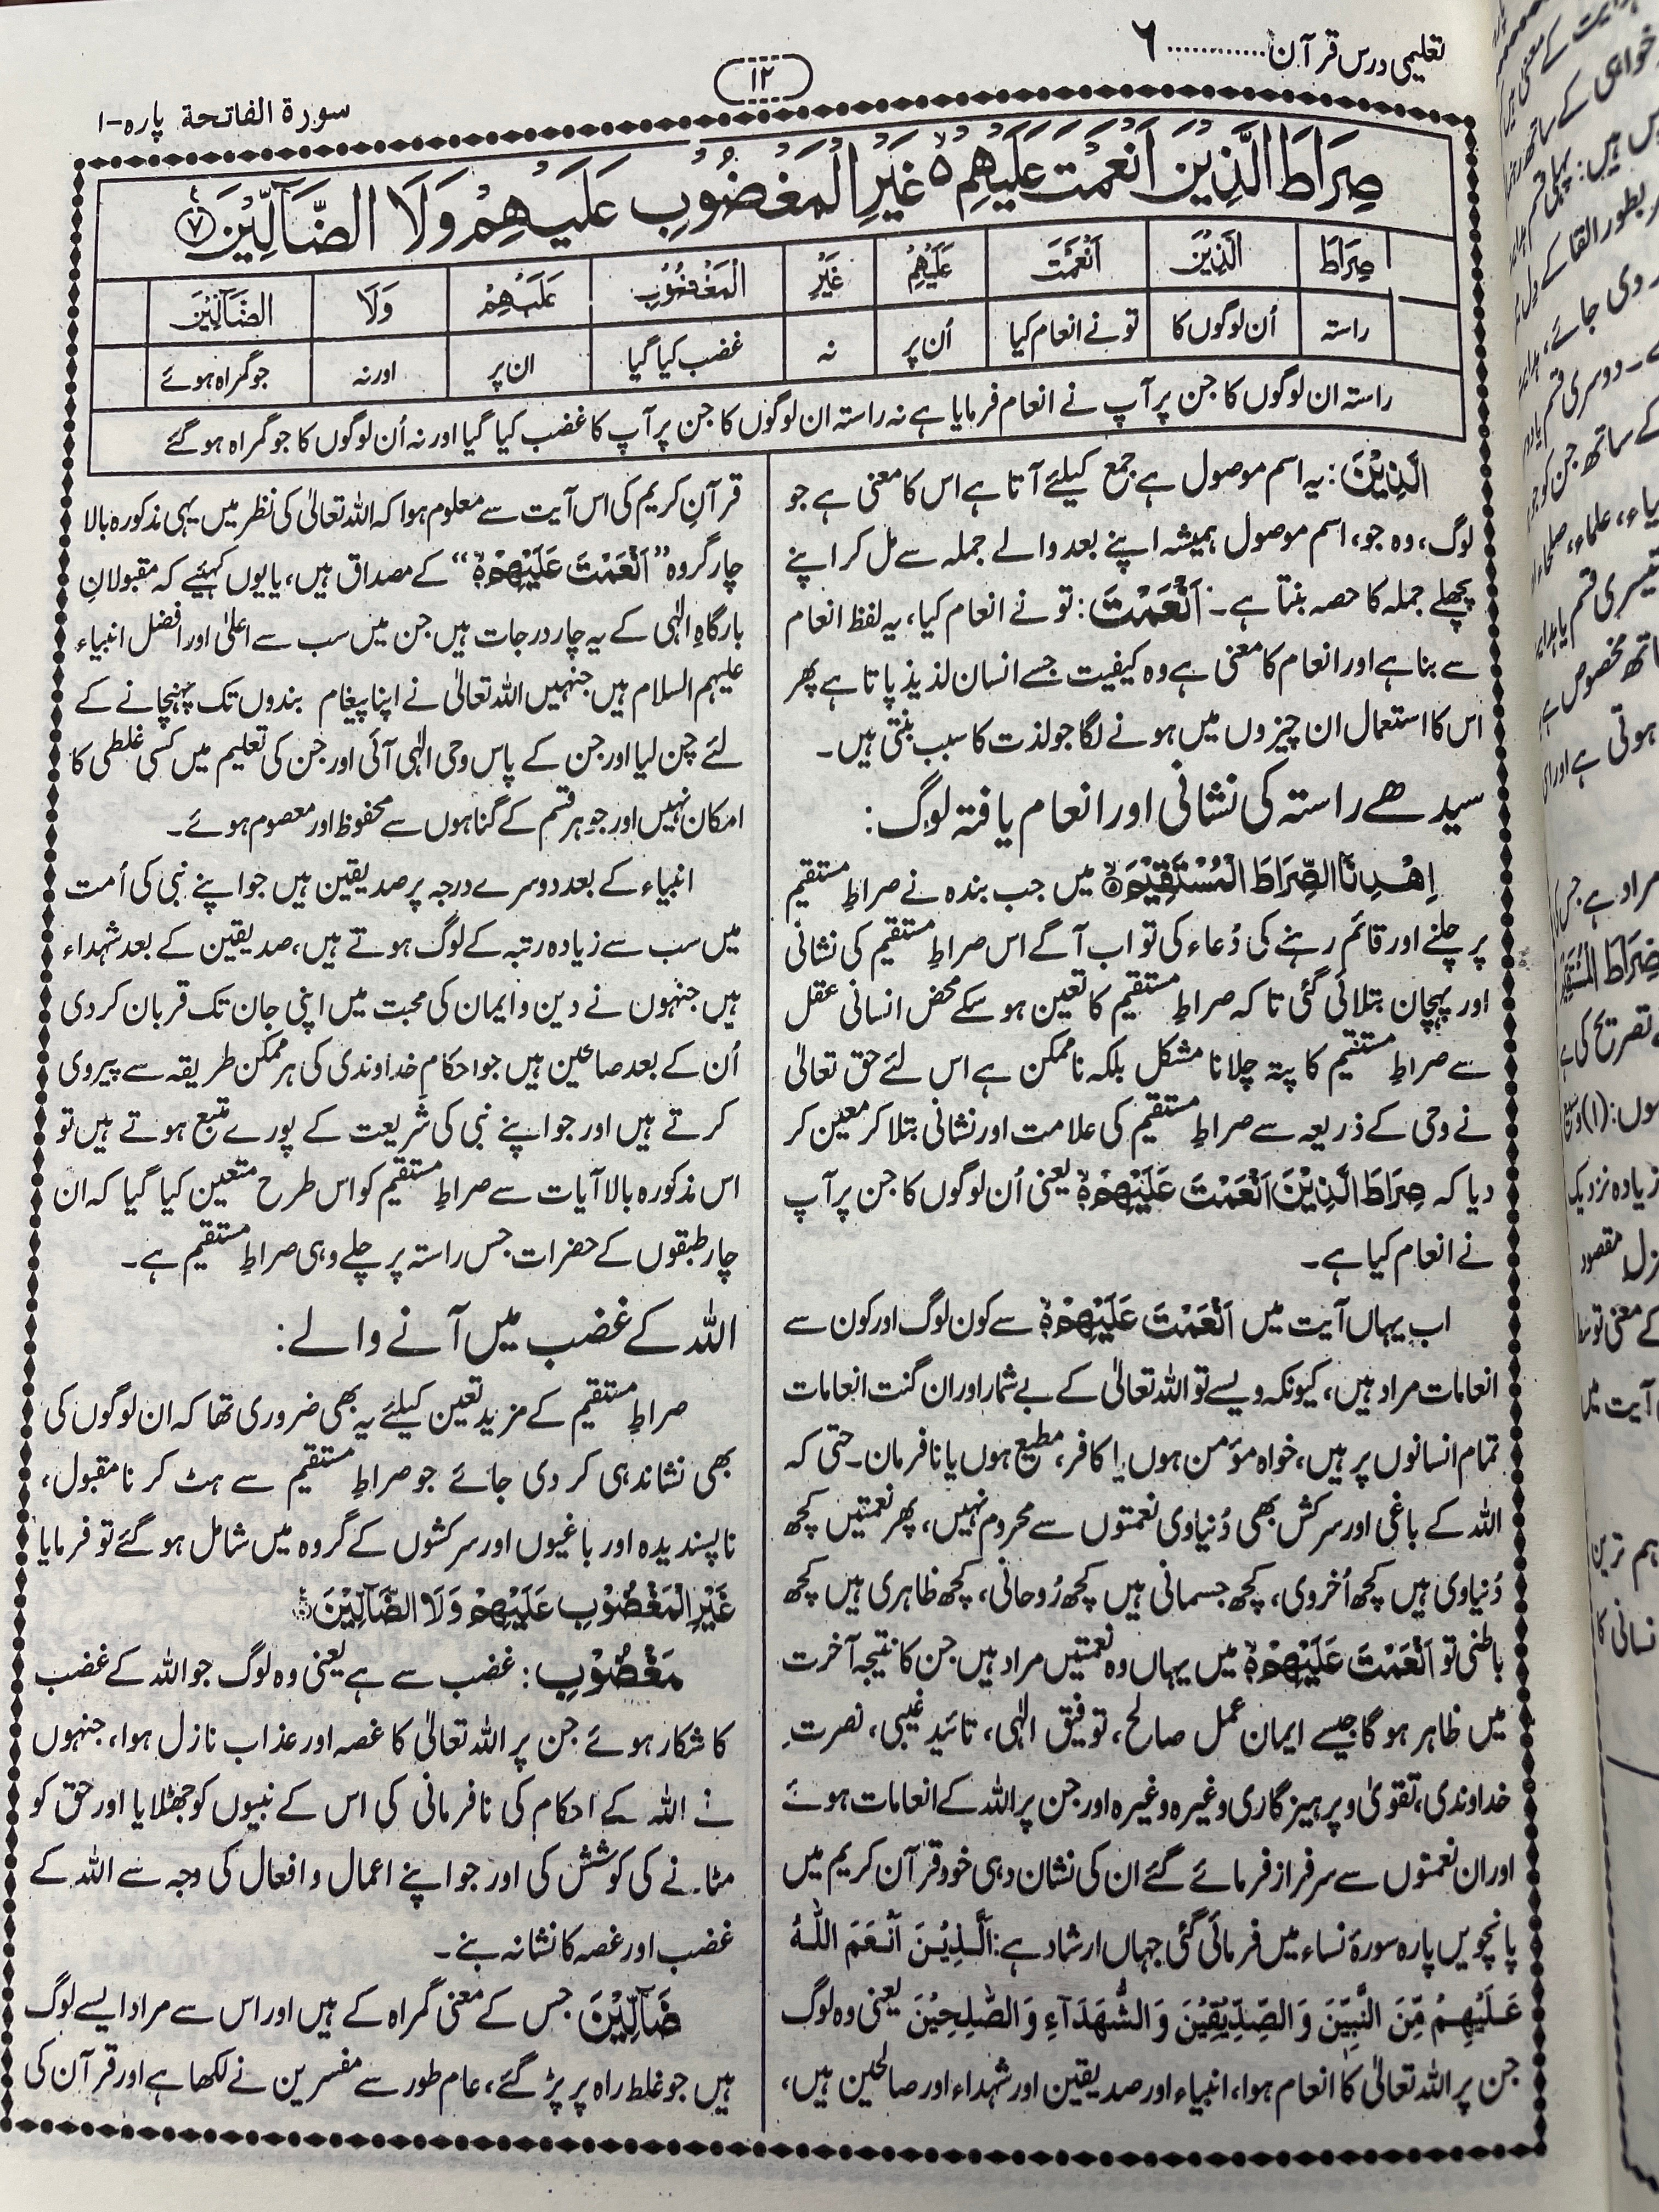 تعلیمی درس قرآن............ ۶
۱۲
سورة الفاتحة پارہ-۱
صِرَاطَ الَّذِيْنَ اَنْعَمْتَ عَلَيْهِمْ ۵ غَيْرِ الْمَغْضُوْبِ عَلَيْهِمْ وَلَا الضَّآلِّيْنَ ۷
صِرَاطَ الَّذِيْنَ اَنْعَمْتَ عَلَيْهِمْ غَيْرِ الْمَغْضُوْبِ عَلَيْهِمْ وَلَا الضَّآلِّيْنَ
راستہ اُن لوگوں کا تو نے انعام کیا اُن پر نہ غضب کیا گیا ان پر اور نہ جو گمراہ ہوئے
راستہ ان لوگوں کا جن پر آپ نے انعام فرمایا ہے نہ راستہ ان لوگوں کا جن پر آپ کا غضب کیا گیا اور نہ اُن لوگوں کا جو گمراہ ہو گئے
الَّذِيْنَ: یہ اسم موصول ہے جمع کیلئے آتا ہے اس کا معنی ہے جو
لوگ، وہ جو، اسم موصول ہمیشہ اپنے بعد والے جملہ سے مل کر اپنے
پچھلے جملہ کا حصہ بنتا ہے۔ اَنْعَمْتَ: تو نے انعام کیا، یہ لفظ انعام
سے بنا ہے اور انعام کا معنی ہے وہ کیفیت جسے انسان لذیذ پاتا ہے پھر
اس کا استعمال ان چیزوں میں ہونے لگا جو لذت کا سبب بنتی ہیں۔
سیدھے راستہ کی نشانی اور انعام یافتہ لوگ:
اِهْدِنَا الصِّرَاطَ الْمُسْتَقِيْمَ ۵ میں جب بندہ نے صراطِ مستقیم
پر چلنے اور قائم رہنے کی دُعاء کی تو اب آگے اس صراطِ مستقیم کی نشانی
اور پہچان بتلائی گئی تا کہ صراطِ مستقیم کا تعین ہو سکے محض انسانی عقل
سے صراطِ مستقیم کا پتہ چلانا مشکل بلکہ ناممکن ہے اس لئے حق تعالیٰ
نے وحی کے ذریعہ سے صراطِ مستقیم کی علامت اور نشانی بتلا کر معین کر
دیا کہ صِرَاطَ الَّذِيْنَ اَنْعَمْتَ عَلَيْهِمْ ۵ یعنی اُن لوگوں کا جن پر آپ
نے انعام کیا ہے۔
اب یہاں آیت میں اَنْعَمْتَ عَلَيْهِمْ ۵ سے کون لوگ اور کون سے
انعامات مراد ہیں، کیونکہ ویسے تو اللہ تعالیٰ کے بے شمار اور ان گنت انعامات
تمام انسانوں پر ہیں، خواہ مؤمن ہوں یا کافر، مطیع ہوں یا نافرمان۔ حتی کہ
اللہ کے باغی اور سرکش بھی دُنیاوی نعمتوں سے محروم نہیں، پھر نعمتیں کچھ
دُنیاوی ہیں کچھ اُخروی، کچھ جسمانی ہیں کچھ رُوحانی، کچھ ظاہری ہیں کچھ
باطنی تو اَنْعَمْتَ عَلَيْهِمْ ۵ میں یہاں وہ نعمتیں مراد ہیں جن کا نتیجہ آخرت
میں ظاہر ہو گا جیسے ایمان عمل صالح، توفیق الٰہی، تائید غیبی، نصرتِ
خداوندی، تقویٰ و پرہیز گاری وغیرہ وغیرہ اور جن پر اللہ کے انعامات ہوئے
اور ان نعمتوں سے سرفراز فرمائے گئے ان کی نشان دہی خود قرآن کریم میں
پانچویں پارہ سورۂ نساء میں فرمائی گئی جہاں ارشاد ہے: اَلَّذِيْنَ اَنْعَمَ اللّٰهُ
عَلَيْهِمْ مِّنَ النَّبِيّٖنَ وَالصِّدِّيْقِيْنَ وَالشُّهَدَآءِ وَالصّٰلِحِيْنَ یعنی وہ لوگ
جن پر اللہ تعالیٰ کا انعام ہوا، انبیاء اور صدیقین اور شہداء اور صالحین ہیں،
قرآنِ کریم کی اس آیت سے معلوم ہوا کہ اللہ تعالیٰ کی نظر میں یہی مذکورہ بالا
چار گروہ ”اَنْعَمْتَ عَلَيْهِمْ ۵“ کے مصداق ہیں، یا یوں کہئیے کہ مقبولانِ
بارگاہِ الٰہی کے یہ چار درجات ہیں جن میں سب سے اعلیٰ اور افضل انبیاء
علیہم السلام ہیں جنہیں اللہ تعالیٰ نے اپنا پیغام بندوں تک پہنچانے کے
لئے چن لیا اور جن کے پاس وحی الٰہی آئی اور جن کی تعلیم میں کسی غلطی کا
امکان نہیں اور جو ہر قسم کے گناہوں سے محفوظ اور معصوم ہوئے۔
انبیاء کے بعد دوسرے درجہ پر صدیقین ہیں جو اپنے نبی کی اُمت
میں سب سے زیادہ رتبہ کے لوگ ہوتے ہیں، صدیقین کے بعد شہداء
ہیں جنہوں نے دین و ایمان کی محبت میں اپنی جان تک قربان کر دی
اُن کے بعد صالحین ہیں جو احکامِ خداوندی کی ہر ممکن طریقہ سے پیروی
کرتے ہیں اور جو اپنے نبی کی شریعت کے پورے متبع ہوتے ہیں تو
اس مذکورہ بالا آیات سے صراطِ مستقیم کو اس طرح متعین کیا گیا کہ ان
چار طبقوں کے حضرات جس راستہ پر چلے وہی صراطِ مستقیم ہے۔
اللہ کے غضب میں آنے والے:
صراطِ مستقیم کے مزید تعین کیلئے یہ بھی ضروری تھا کہ ان لوگوں کی
بھی نشاندہی کر دی جائے جو صراطِ مستقیم سے ہٹ کر نامقبول،
ناپسندیدہ اور باغیوں اور سرکشوں کے گروہ میں شامل ہو گئے تو فرمایا
غَيْرِ الْمَغْضُوْبِ عَلَيْهِمْ وَلَا الضَّآلِّيْنَ
مَغْضُوْبِ: غضب سے ہے یعنی وہ لوگ جو اللہ کے غضب
کا شکار ہوئے جن پر اللہ تعالیٰ کا غصہ اور عذاب نازل ہوا، جنہوں
نے اللہ کے احکام کی نافرمانی کی اس کے نبیوں کو جھٹلایا اور حق کو
مٹانے کی کوشش کی اور جو اپنے اعمال و افعال کی وجہ سے اللہ کے
غضب اور غصہ کا نشانہ بنے۔
ضَآلِّيْنَ جس کے معنی گمراہ کے ہیں اور اس سے مراد ایسے لوگ
ہیں جو غلط راہ پر پڑ گئے، عام طور سے مفسرین نے لکھا ہے اور قرآن کی